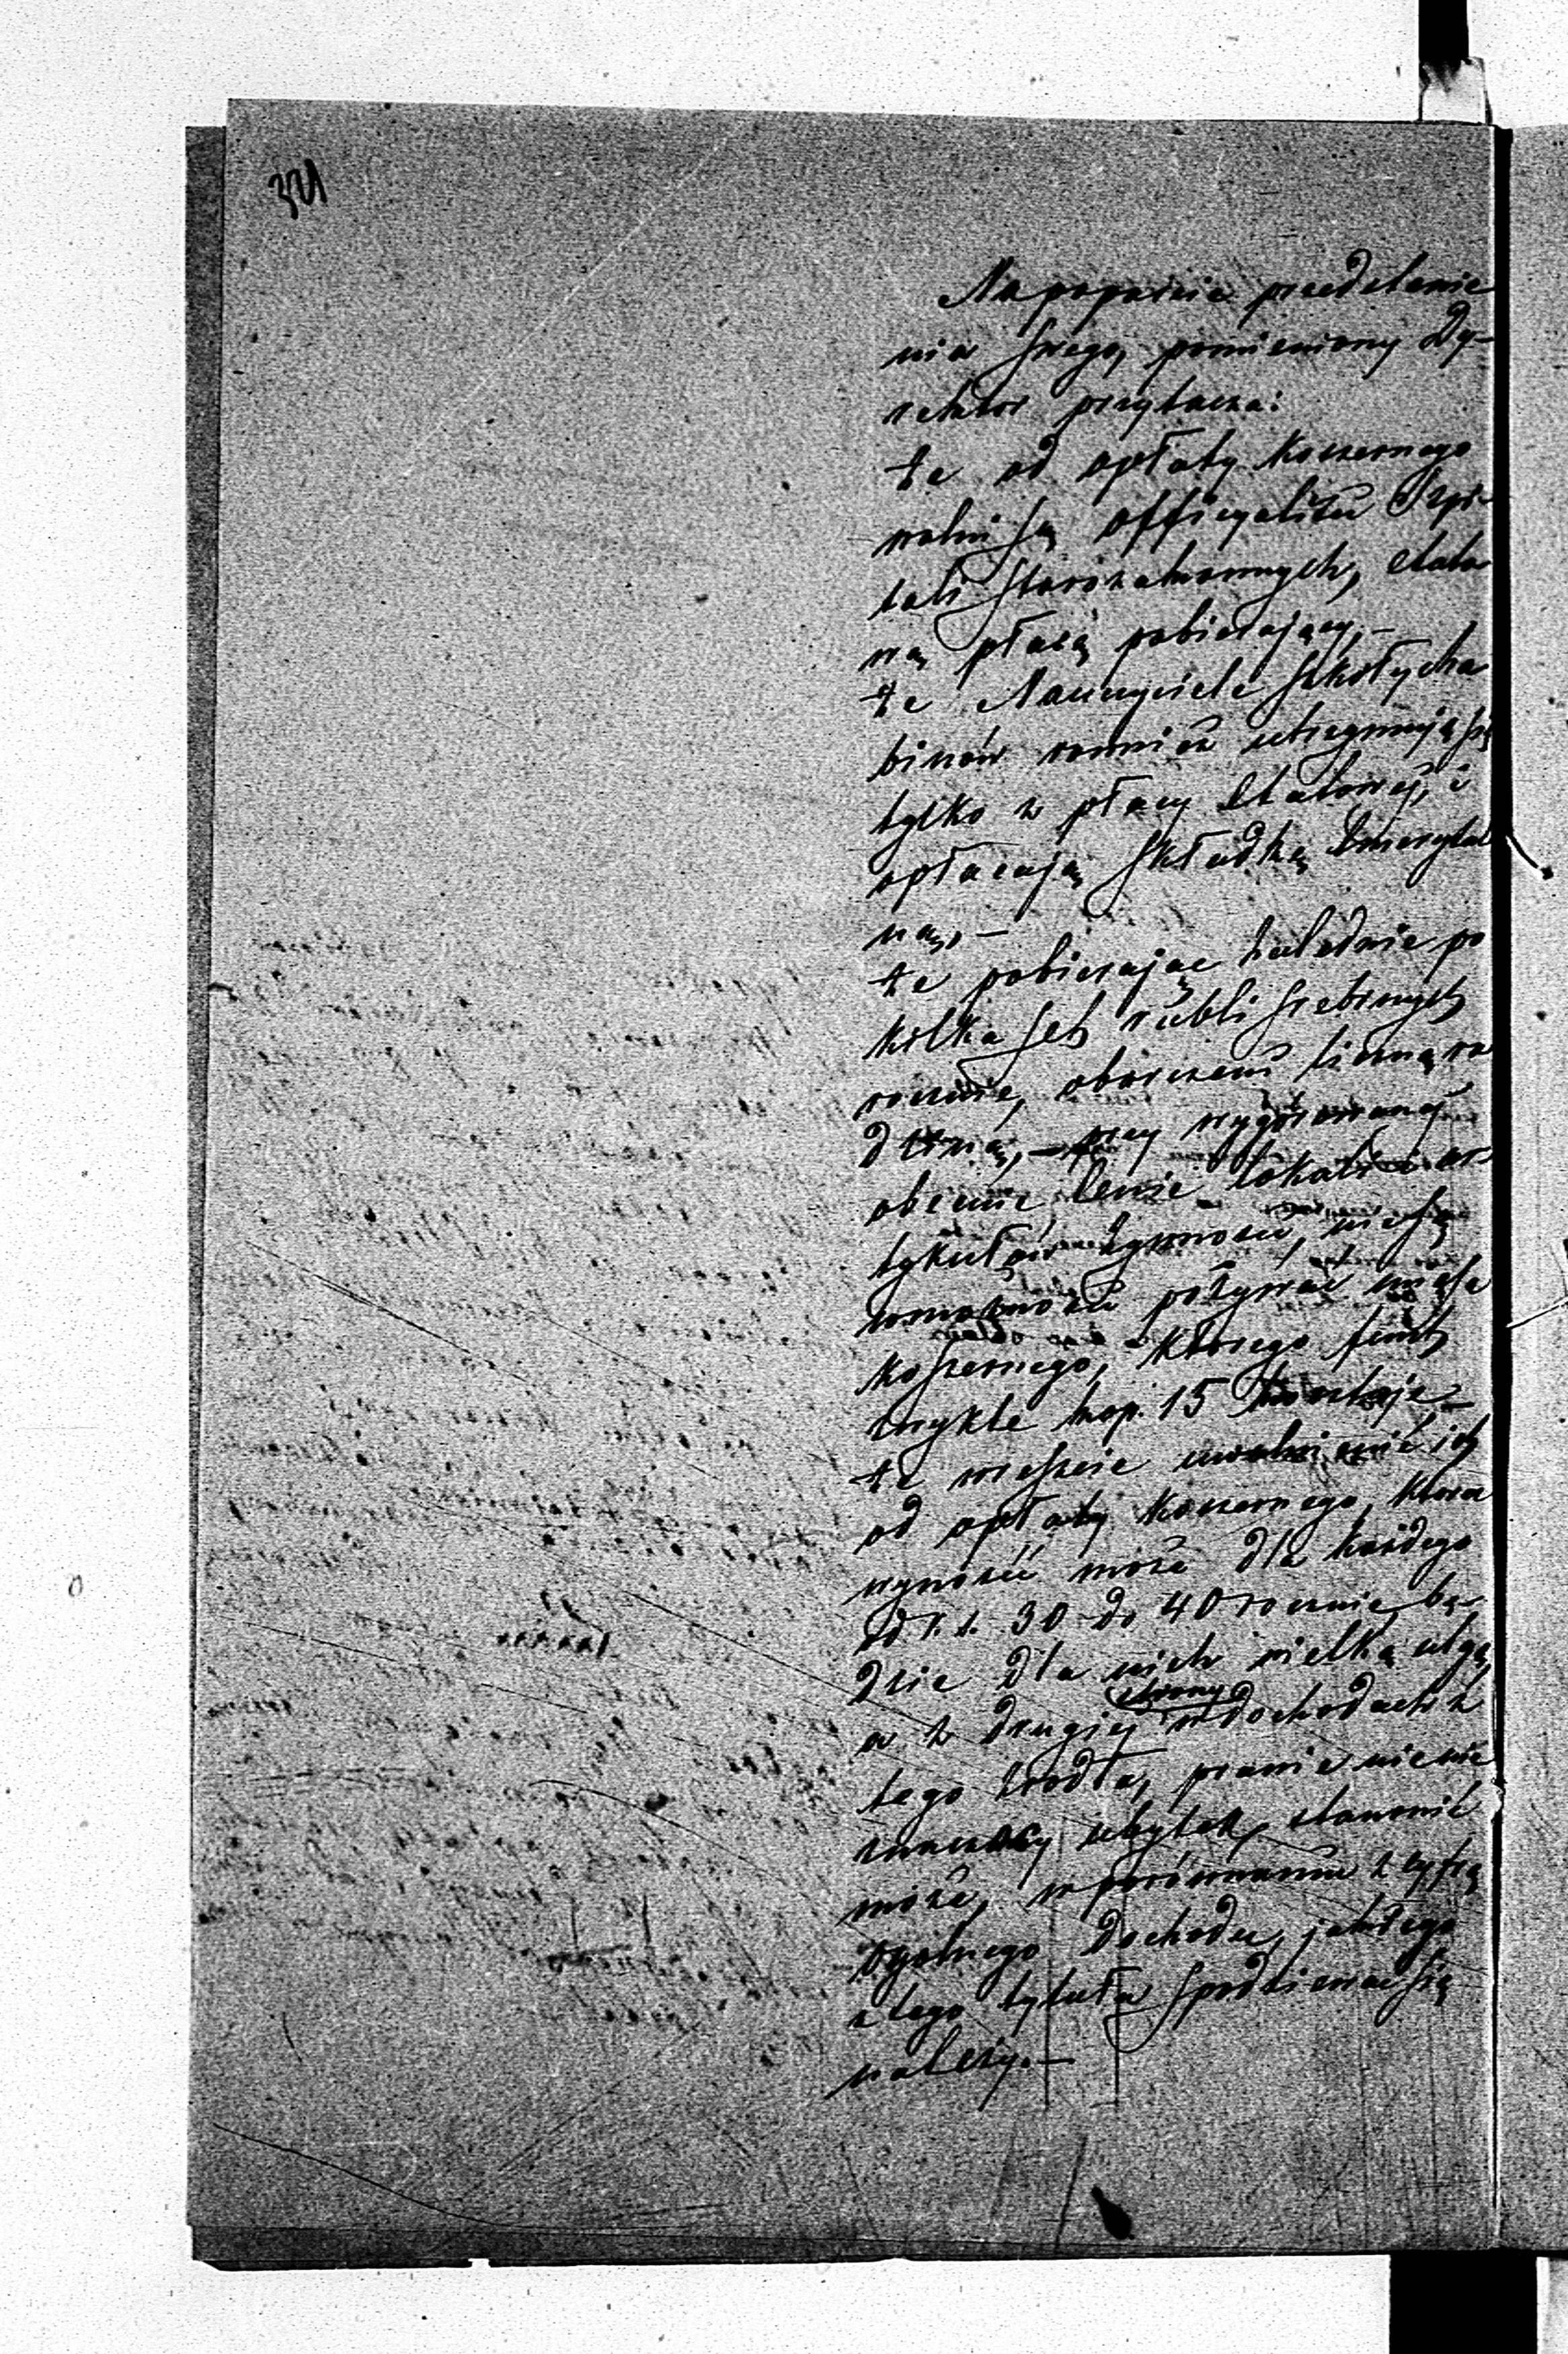 321
Na poparcie przedstawie
nia swego, pomieniony Dy-
rektor przytacza:
że od opłaty koszernego
wolni są officyaliści Szpi-
tali starozakonnych, etato-
wą płacą pobierający,—
że Nauczyciele Szkoły Ra
binów równieź utrzymują się
tylko z płacy Etatowej, i
opłacają Składkę Emerytal
ną,—
że pobierając zaledwie po
kilka set rubli srebrnych
rocznie, obarczeni liczną ro
dziną,— przy wygórowanej
obecnie cenie lokali i ar-
tykułów żywności, nie są
w możności pożywać mięsa
koszernego, którego funt
zwykle kop. 15 kosztuje—
że wreszcie uwolnienie ich
od opłaty koszernego, która
wynosić może dla każdego
od r. s. 30 do 40 rocznie, bę-
dzie dla nich wielką ulgą,
a z drugiej strony w dochodach z
tego źrodła, prawie nic nie
znaczący ubytek, stanowić
może, w porównaniu z cyfrą
ogólnego dochodu, jakiego
z tego tytułu spodziewać się
należy.—